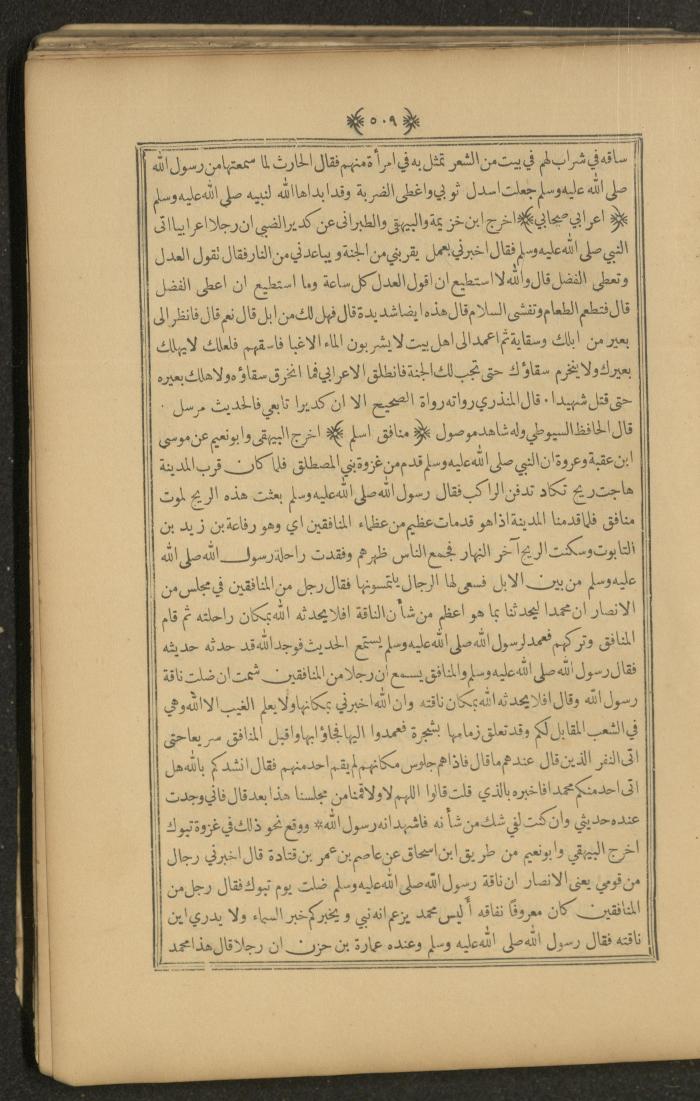 ﴿ ٥٠٩ ﴾
ساقه في شراب لهم في بيت من الشعر تمثل به في امرأة منهم فقال الحارث لما سمعتها من رسول الله
صلى الله عليه وسلم جعلت اسدل ثوبي واغطى الضربة وقد ابداها الله لنبيه صلى الله عليه وسلم
﴿ اعرابي صحابي ﴾ اخرج ابن خزيمة والبيهقي والطبراني عن كدير الضبي ان رجلا اعرابيا اتى
النبي صلى الله عليه وسلم فقال اخبرني بعمل يقربني من الجنة ويباعدني من النار فقال تقول العدل
وتعطى الفضل قال والله لا استطيع ان اقول العدل كل ساعة وما استطيع ان اعطى الفضل
قال فتطعم الطعام وتفشى السلام قال هذه ايضا شديدة قال فهل لك من ابل قال نعم قال فانظر الى
بعير من ابلك وسقاية ثم اعمد الى اهل بيت لا يشربون الماء الاغبا فاسقهم فلعلك لا يهلك
بعيرك ولا ينخرم سقاؤك حتى تجب لك الجنة فانطلق الاعرابي فما انخرق سقاؤه ولا هلك بعيره
حتى قتل شهيدا ٠ قال المنذري رواته رواة الصحيح الا ان كديرا تابعي فالحديث مرسل ٠
قال الحافظ السيوطي وله شاهد موصول ﴿ منافق اسلم ﴾ اخرج البيهقى وابو نعيم عن موسى
ابن عقبة وعروة ان النبي صلى الله عليه وسلم قدم من غزوة بني المصطلق فلما كان قرب المدينة
هاجت ريح تكاد تدفن الراكب فقال رسول الله صلى الله عليه وسلم بعثت هذه الريح لموت
منافق فلما قدمنا المدينة اذا هو قد مات عظيم من عظماء المنافقين اي وهو رفاعة بن زيد بن
التابوت وسكنت الريح آخر النهار فجمع الناس ظهرهم وفقدت راحلة رسول الله صلى الله
عليه وسلم من بين الابل فسعى لها الرجال يلتمسونها فقال رجل من المنافقين في مجلس من
الانصار ان محمدا ليحدثنا بما هو اعظم من شأن الناقة افلا يحدثه الله بمكان راحلته ثم قام
المنافق وتركهم فعمد لرسول الله صلى الله عليه وسلم يستمع الحديث فوجد الله قد حدثه حديثه
فقال رسول الله صلى الله عليه وسلم والمنافق يسمع ان رجلا من المنافقين شمت ان ضلت ناقة
رسول الله وقال افلا يحدثه الله بمكان ناقته وان الله اخبرني بمكانها ولا يعلم الغيب الا الله وهي
في الشعب المقابل لكم وقد تعلق زمامها بشجرة فعمدوا اليها فجاؤا بها واقبل المنافق سريعا حتى
اتى النفر الذين قال عندهم ما قال فاذا هم جلوس مكانهم لم يقم احد منهم فقال انشدكم بالله هل
اتى احد منكم محمدا فاخبره بالذي قلت قالوا اللهم لا ولا قمنا من مجلسنا هذا بعد قال فاني وجدت
عنده حديثي وان كنت لفي شك من شأنه فاشهد انه رسول الله * ووقع نحو ذلك في غزوة تبوك
اخرج البيهقي وابو نعيم من طريق ابن اسحاق عن عاصم بن عمر بن قتادة قال اخبرني رجال
من قومي يعنى الانصار ان ناقة رسول الله صلى الله عليه وسلم ضلت يوم تبوك فقال رجل من
المنافقين كان معروفًا نفاقه أليس محمد يزعم انه نبي ويخبركم خبر السماء ولا يدري اين
ناقته فقال رسول الله صلى الله عليه وسلم وعنده عمارة بن حزن ان رجلا قال هذا محمد